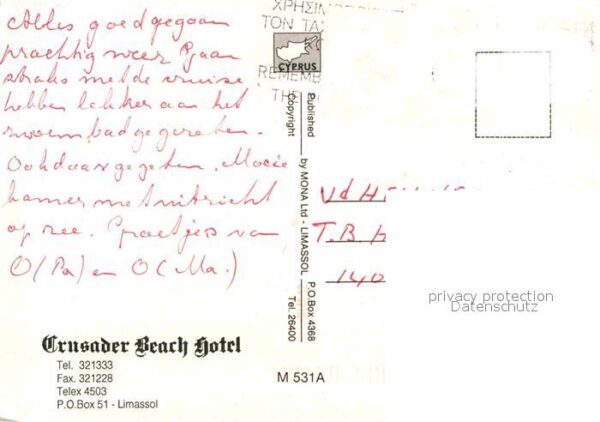 Alles goed gegaan
prachtig weer Gaan
straks met de cruise
hebben lekker aan het
zwembad gegeten.
Ook daar gegeten. Mooie
kamer met uitzicht
op zee. Groetjes van
O(Pa) en O(Ma.)
Crusader Beach Hotel
Tel. 321333
Fax. 321228
Telex 4503
P.O.Box 51 - Limassol
ΧΡΗΣΙΜ
ΤΟΝ ΤΑΧ
CYPRUS
REMEMB
TH
Published by MONA Ltd - LIMASSOL P.O.Box 4368
Copyright Tel. 26400
M 531A
Vd H
T.B.
140
privacy protection
Datenschutz